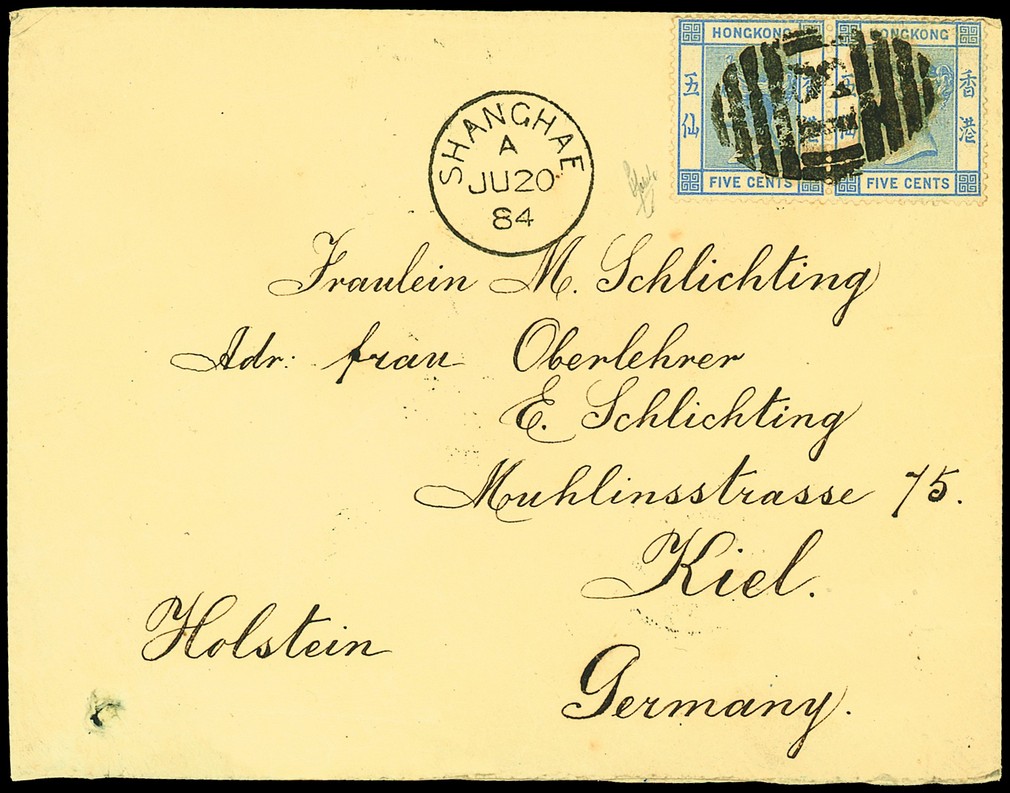 HONGKONG HONGKONG
五仙 香港 五仙 香港
FIVE CENTS FIVE CENTS
SHANGHAE
A
JU 20
84
Fraulein M. Schlichting
Adr: frau Oberlehrer
E. Schlichting
Muhlinsstrasse 75.
Kiel.
Holstein
Germany.